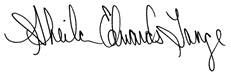 Sheila Edwards Lange